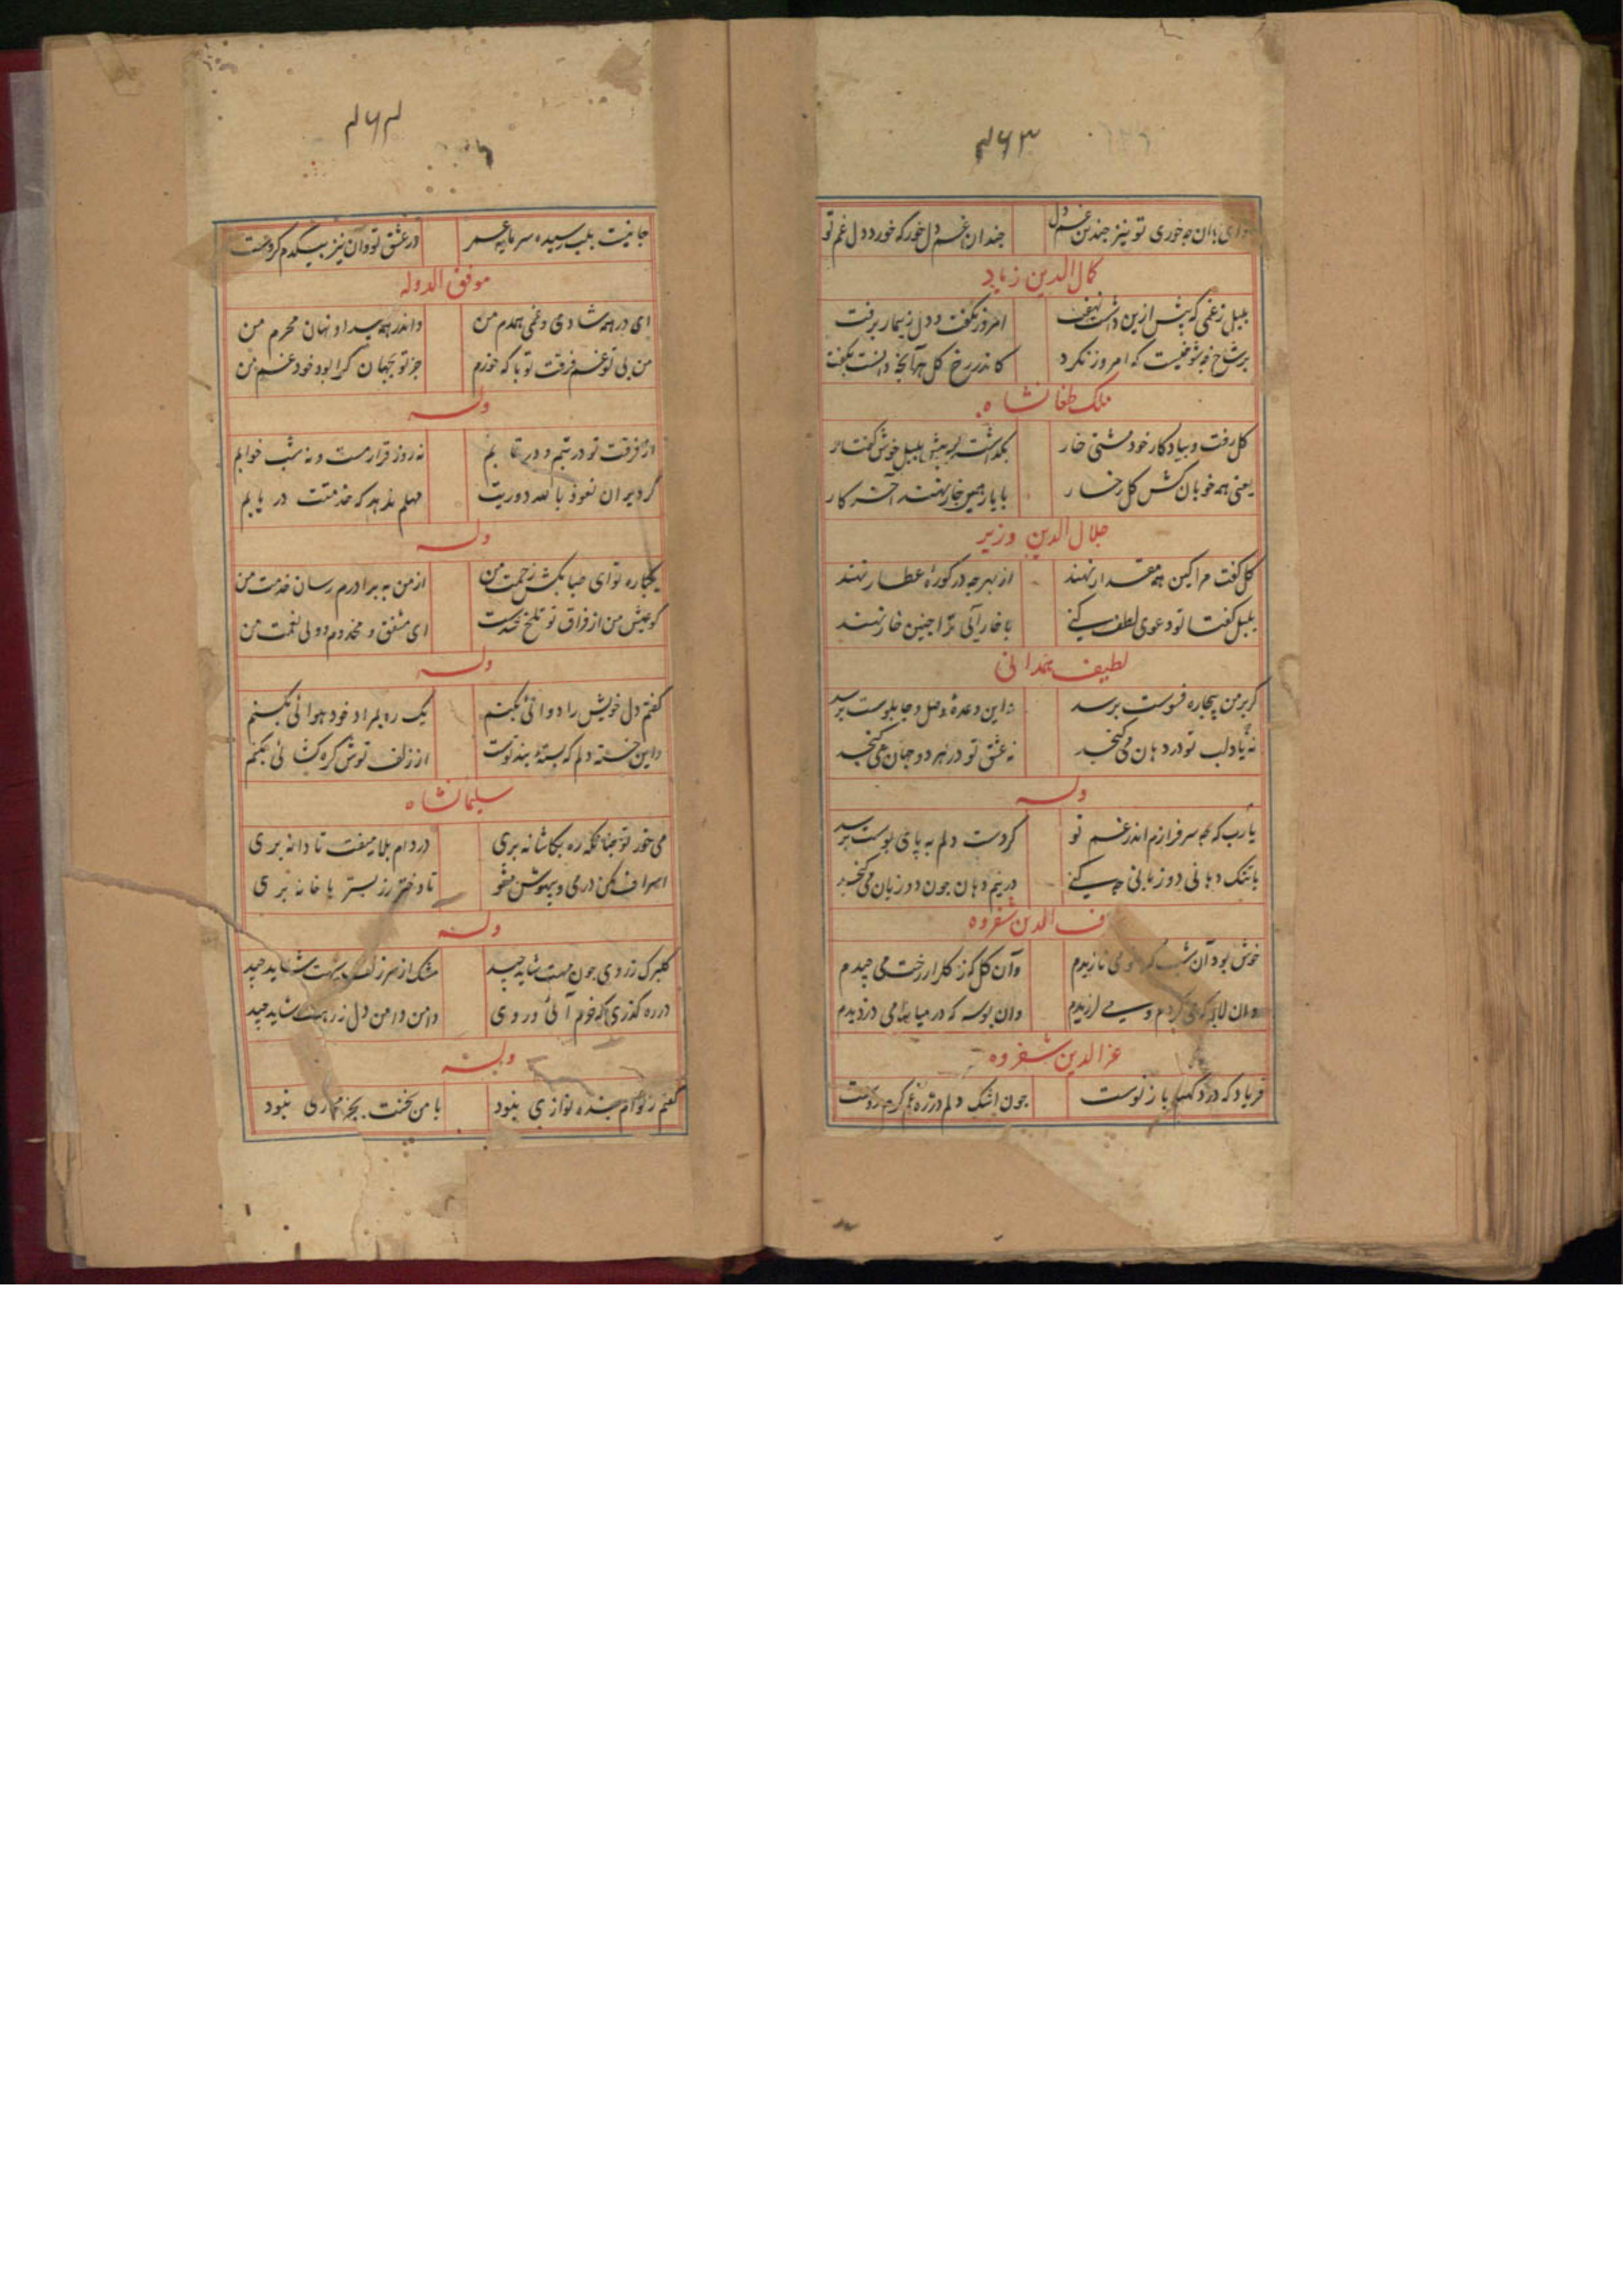 ۴۶۳
تو نیز چندین غم دل
چندان غم دل خور که خورد دل غم تو
کمال الدین زیاد
بلبل ز غمی که پیش ازین داشت نهفت
امروز بگفت و دل ز تیمار برفت
بر شاخ که امروز نکرد
کاندر رخ کل هر آنچه دانست بگفت
ملک طغانشاه
کل رفت و بیادکار خود مشتی خار
بگذاشت به پیش بلبل خوش گفتار
یعنی همه خوبان کش کل رخسار
با یار همین خار نهند آخر کار
جلال الدین وزیر
کل گفت مرا کین همه مقدار نهند
از بهر چه در کوره عطار نهند
بلبل گفتا تو دعوی لطف کنی
با خار آئی ترا چنین خار نهند
لطیف همدانی
گر بر من بیچاره فسوست برسد
نه این وعده وصل و چابلوست برسد
نه یاد لب تو در دهان می گنجد
نه عشق تو در هر دو جهان می گنجد
وله
یارب که چه سر فرازم اندر غم تو
گر دست دلم به پای بوست برسد
با تنک دهانی دو زبانی چه کنی
در نیم دهان چون دو زبان می گنجد
شرف الدین شفروه
خوش بود آن شب که می نازیدم
وآن کل که ز کلزار رخت می چیدم
وان لابه که می کردم و می لرزیدم
وان بوسه که در میانه می دزدیدم
عز الدین شفروه
فریاد که درد کهنه باز نوست
چون اشک دلم
۴۶۴
جانیست بلب رسیده سرمایه عمر
در عشق تو وان نیز بیکدم گروست
موفق الدوله
ای در همه شادی و غمی همدم من
واندر همه پیدا و نهان محرم من
من بی تو غم فرقت تو با که خورم
جز تو بجهان کرا بود خود غم من
وله
از فرقت تو در تبم و در تابم
نه روز قرارست و نه شب خوابم
گر دیر ان نعوذ بالله دوریت
مهلم ندهد که خدمتت در یابم
وله
یکباره تو ای صبا بکش زحمت من
از من به برادرم رسان خدمت من
کو عیش من از فراق تو تلخ شدست
ای مشفق و مخدوم و ولی نعمت من
وله
گفتم دل خویش را دوائی بکنم
یک ره بمراد خود هوائی بکنم
واین خسته دلم که بسته بند توست
از زلف توش گره کشائی بکنم
سلیمانشاه
می خور تو چنانکه ره بکاشانه بری
در دام بلا میفت تا دانه بری
اسراف مکن در می و بیهوش مشو
تا دختر رز بستر یا خانه بری
وله
کلبرک ز روی چون مهت شاید چید
مشک از سر زلف سیهت شاید چید
در ره گذری که خوم آئی در وی
دامن دامن دل ز رهت شاید چید
وله
گفتم بنده نوازی نبود
با من سخنت بجز مجازی نبود